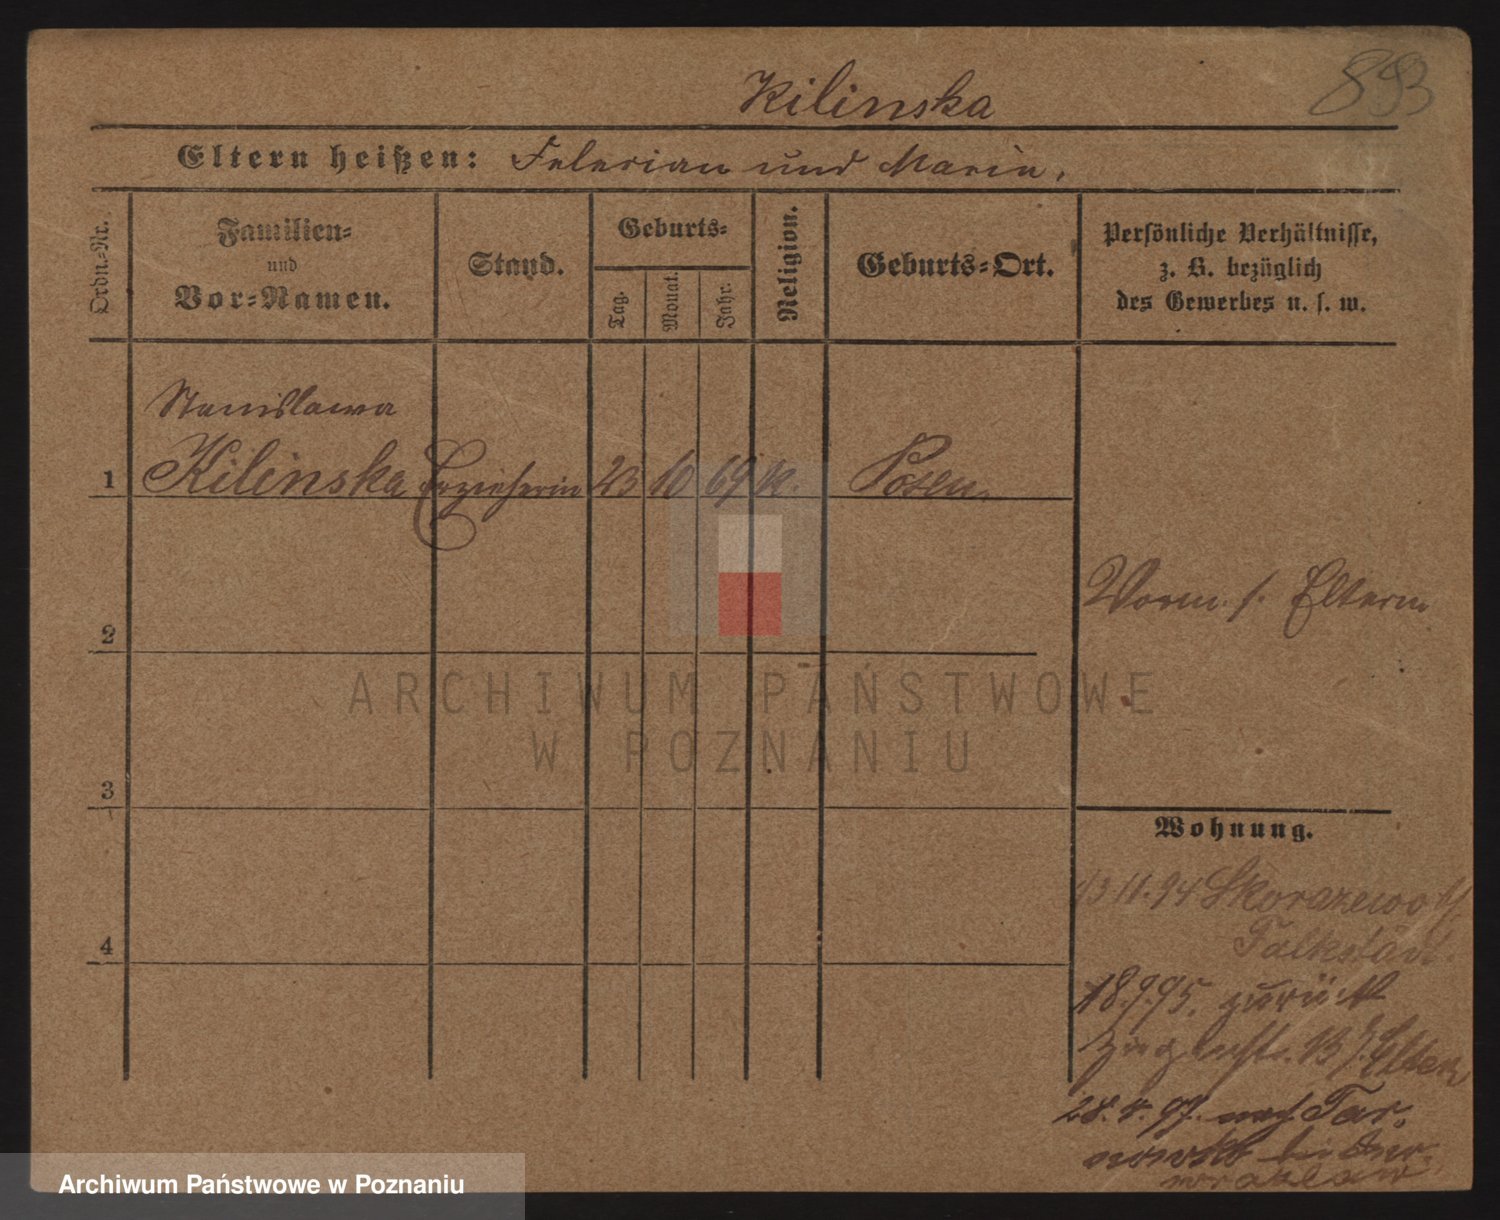 Kilinska
893
Eltern heißen: Felerian und Maria.
Ordn.-Nr.
Familien-
und
Vor-Namen.
Stand.
Geburts-
Tag.
Monat.
Jahr.
Religion.
Geburts-Ort.
Persönliche Verhältnisse,
z. B. bezüglich
des Gewerbes u. s. w.
Stanislawa
1 Kilinska Erzieherin 23 10 69 k. Posen.
Vorm. s. Eltern
2
3
4
ARCHIWUM PAŃSTWOWE
W POZNANIU
Wohnung.
13 11. 94 Skorazewo
Falkstädt.
18.9.95. zurück
13 Eltern
28.4.97. nach Tar-
nowko bei
wrazlaw
Archiwum Państwowe w Poznaniu